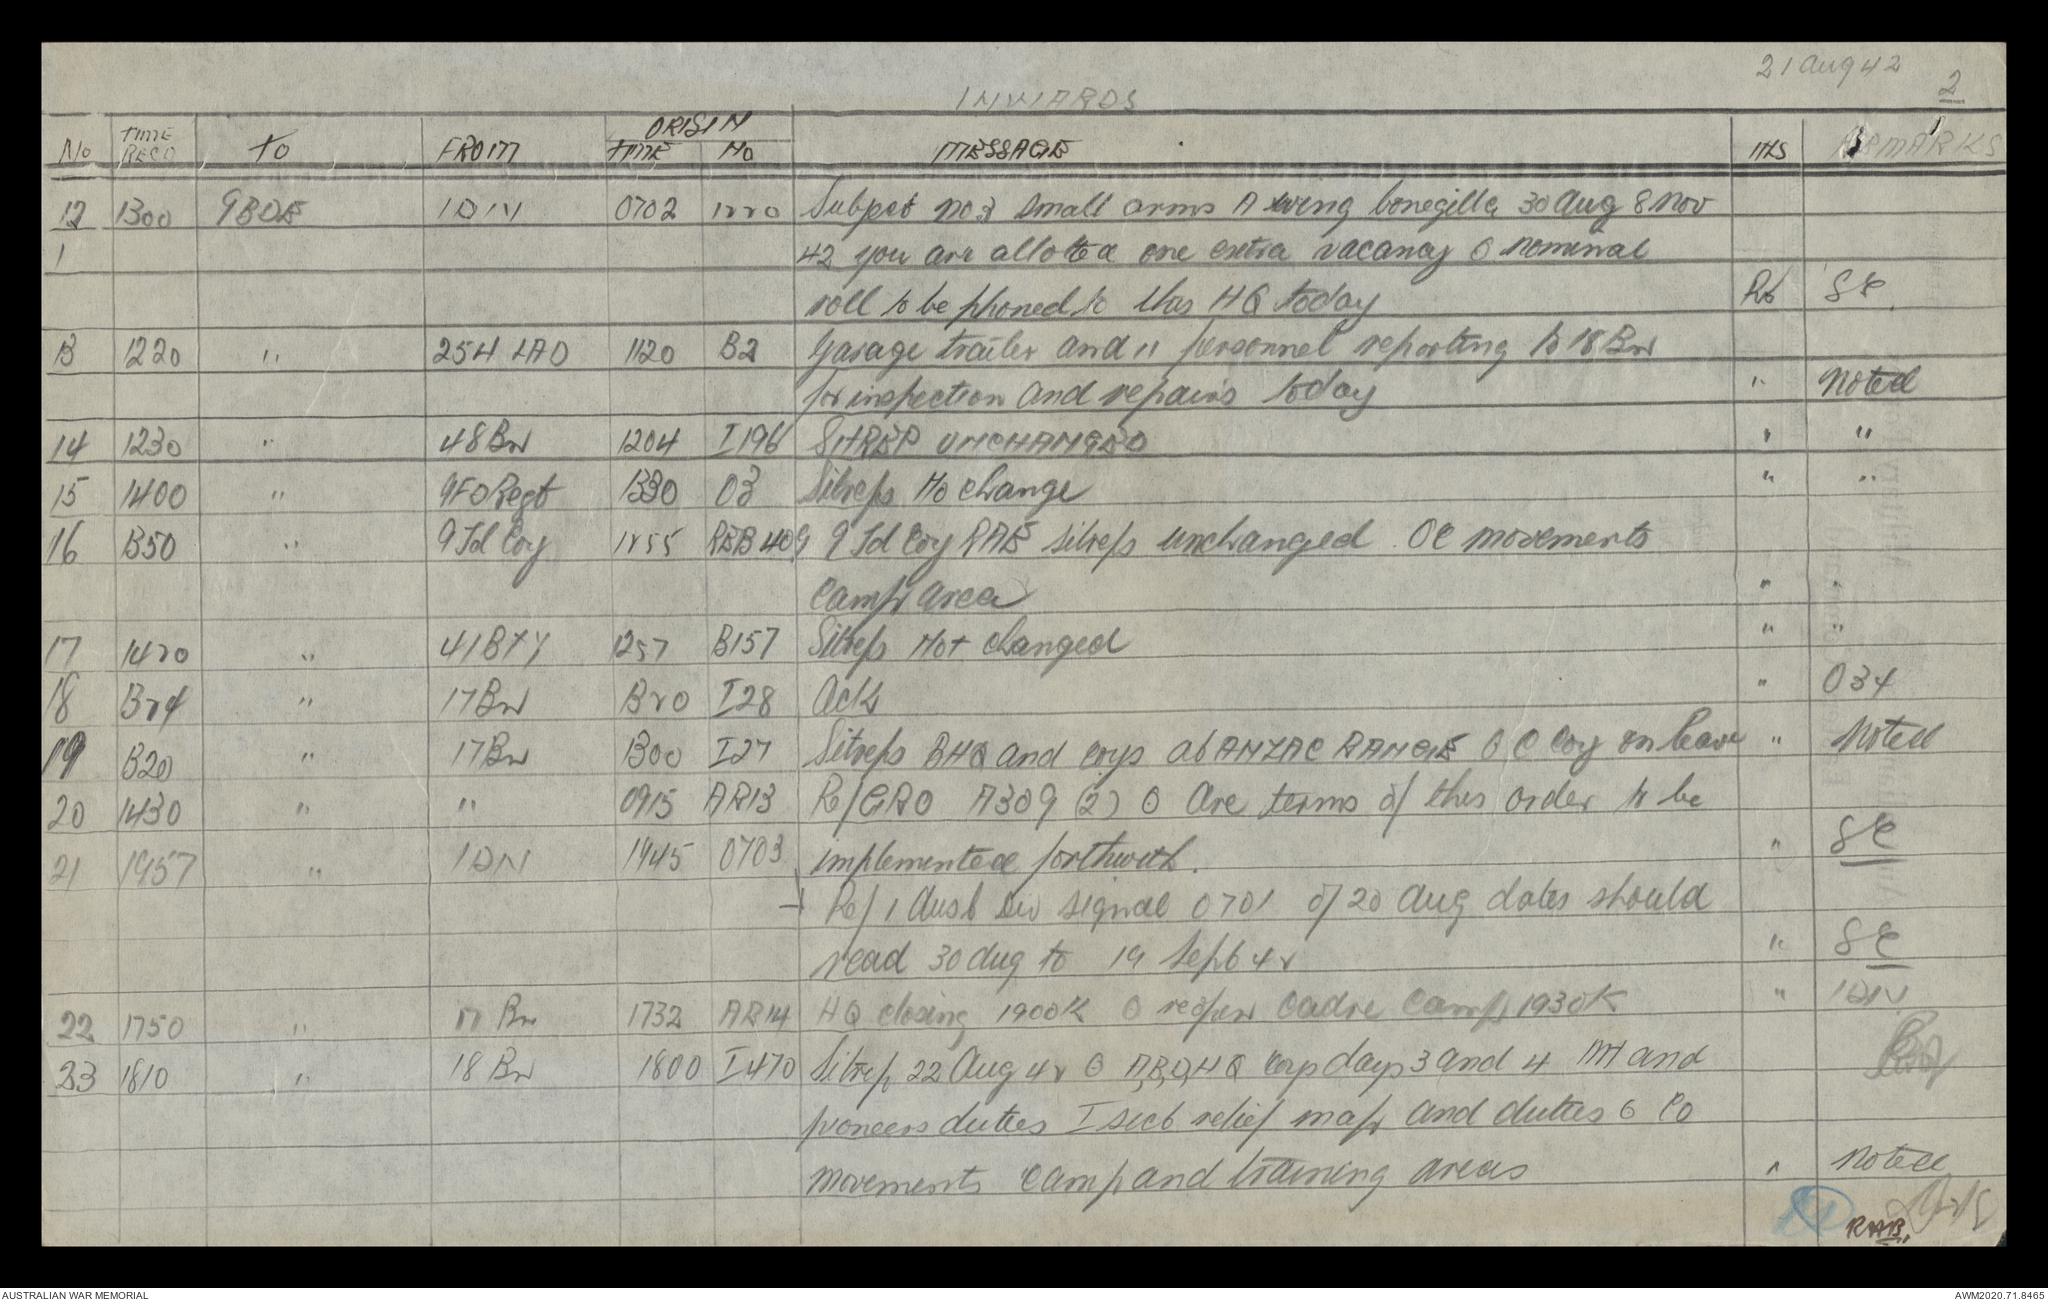 21 Aug 42
2
INWARDS
No TIME RECD TO FROM ORIGIN TIME No MESSAGE INLS REMARKS
12 1300 9BDE 1DIV 0702 1220 Subject no 3 small arms A wing bonegilla 30 Aug 8 Nov
42 you are allotted one extra vacancy O nominal
roll to be phoned to this HQ today Rb SC
13 1220 " 254 LAD 1120 B2 Garage trailer and 11 personnel reporting to 18 Bn
for inspection and repairs today " Noted
14 1230 " 48 Bn 1204 I196 SITREP UNCHANGED " "
15 1400 " 9FD Regt 1330 03 Sitreps No change " "
16 1350 " 9 Fd Coy 1255 REB409 9 Fd Coy RAE sitreps unchanged. OC movements
Camp area " "
17 1420 " 41 BTY 1257 B157 Sitreps Not changed " "
18 1324 " 17 Bn 1320 I28 Ack " 034
19 1320 " 17 Bn 1300 I27 Sitreps BHQ and coys at ANZAC RANGE O C Coy on leave " Noted
20 1430 " " 0915 AR13 Ref GRO A309 (2) O Are terms of this order to be
21 1957 " 1DIV 1945 0703 implemented forthwith. " SC
Ref 1 Aust Div signal 0701 of 20 Aug dates should
read 30 Aug to 19 Sept 42 " SC
22 1750 " 17 Bn 1732 AR14 HQ closing 1900K O reopen Cadre Camp 1930K " 1DIV
23 1810 " 18 Bn 1800 I470 Sitrep 22 Aug 42 O A,B,D,HQ Coys days 3 and 4 MT and
pioneers duties I sect relief map and duties O CO
movements Camp and training areas " Noted
RAB.
AUSTRALIAN WAR MEMORIAL
AWM2020.71.8465